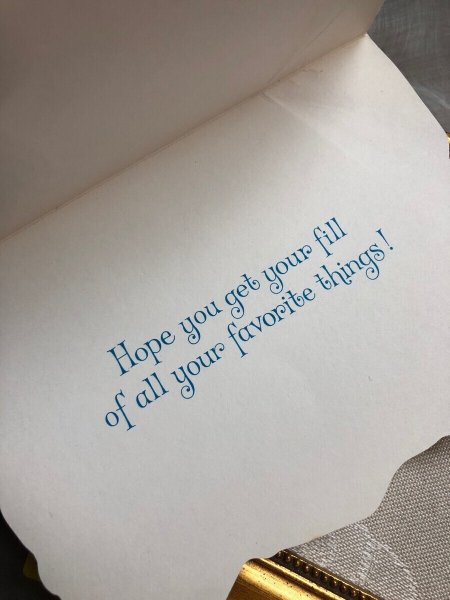 Hope you get your fill
of all your favorite things!